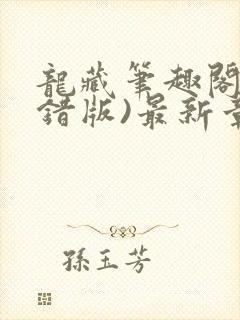 龍藏筆趣閣
錯版)最新章
孫玉芳